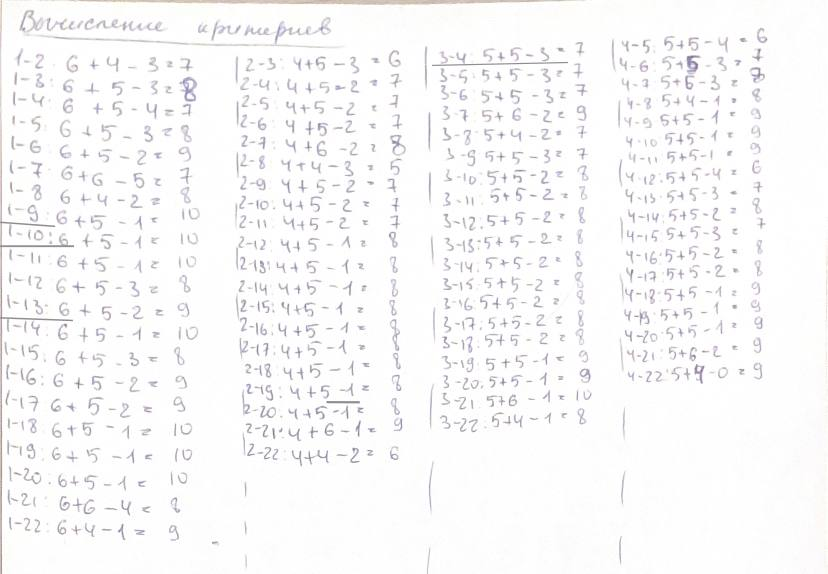 Вычисление критериев
1-2: 6+4-3=7
1-3: 6+5-3=8
1-4: 6+5-4=7
1-5: 6+5-3=8
1-6: 6+5-2=9
1-7: 6+6-5=7
1-8 6+4-2=8
1-9: 6+5-1=10
1-10: 6+5-1=10
1-11: 6+5-1=10
1-12 6+5-3=8
1-13: 6+5-2=9
1-14: 6+5-1=10
1-15: 6+5-3=8
1-16: 6+5-2=9
1-17 6+5-2=9
1-18: 6+5-1=10
1-19: 6+5-1=10
1-20: 6+5-1=10
1-21: 6+6-4=8
1-22: 6+4-1=9
2-3: 4+5-3=6
2-4: 4+5-2=7
2-5: 4+5-2=7
2-6: 4+5-2=7
2-7: 4+6-2=8
2-8: 4+4-3=5
2-9: 4+5-2=7
2-10: 4+5-2=7
2-11: 4+5-2=7
2-12: 4+5-1=8
2-13: 4+5-1=8
2-14: 4+5-1=8
2-15: 4+5-1=8
2-16: 4+5-1=8
2-17: 4+5-1=8
2-18: 4+5-1=8
2-19: 4+5-1=8
2-20: 4+5-1=8
2-21: 4+6-1=9
2-22: 4+4-2=6
3-4: 5+5-3=7
3-5: 5+5-3=7
3-6: 5+5-3=7
3-7: 5+6-2=9
3-8: 5+4-2=7
3-9 5+5-3=7
3-10: 5+5-2=8
3-11: 5+5-2=8
3-12: 5+5-2=8
3-13: 5+5-2=8
3-14: 5+5-2=8
3-15: 5+5-2=8
3-16: 5+5-2=8
3-17: 5+5-2=8
3-18: 5+5-2=8
3-19: 5+5-1=9
3-20: 5+5-1=9
3-21: 5+6-1=10
3-22: 5+4-1=8
4-5: 5+5-4=6
4-6: 5+5-3=7
4-7: 5+6-3=8
4-8 5+4-1=8
4-9 5+5-1=9
4-10 5+5-1=9
4-11 5+5-1=9
4-12: 5+5-4=6
4-13: 5+5-3=7
4-14: 5+5-2=8
4-15: 5+5-3=7
4-16: 5+5-2=8
4-17: 5+5-2=8
4-18: 5+5-1=9
4-19: 5+5-1=9
4-20: 5+5-1=9
4-21: 5+6-2=9
4-22: 5+4-0=9